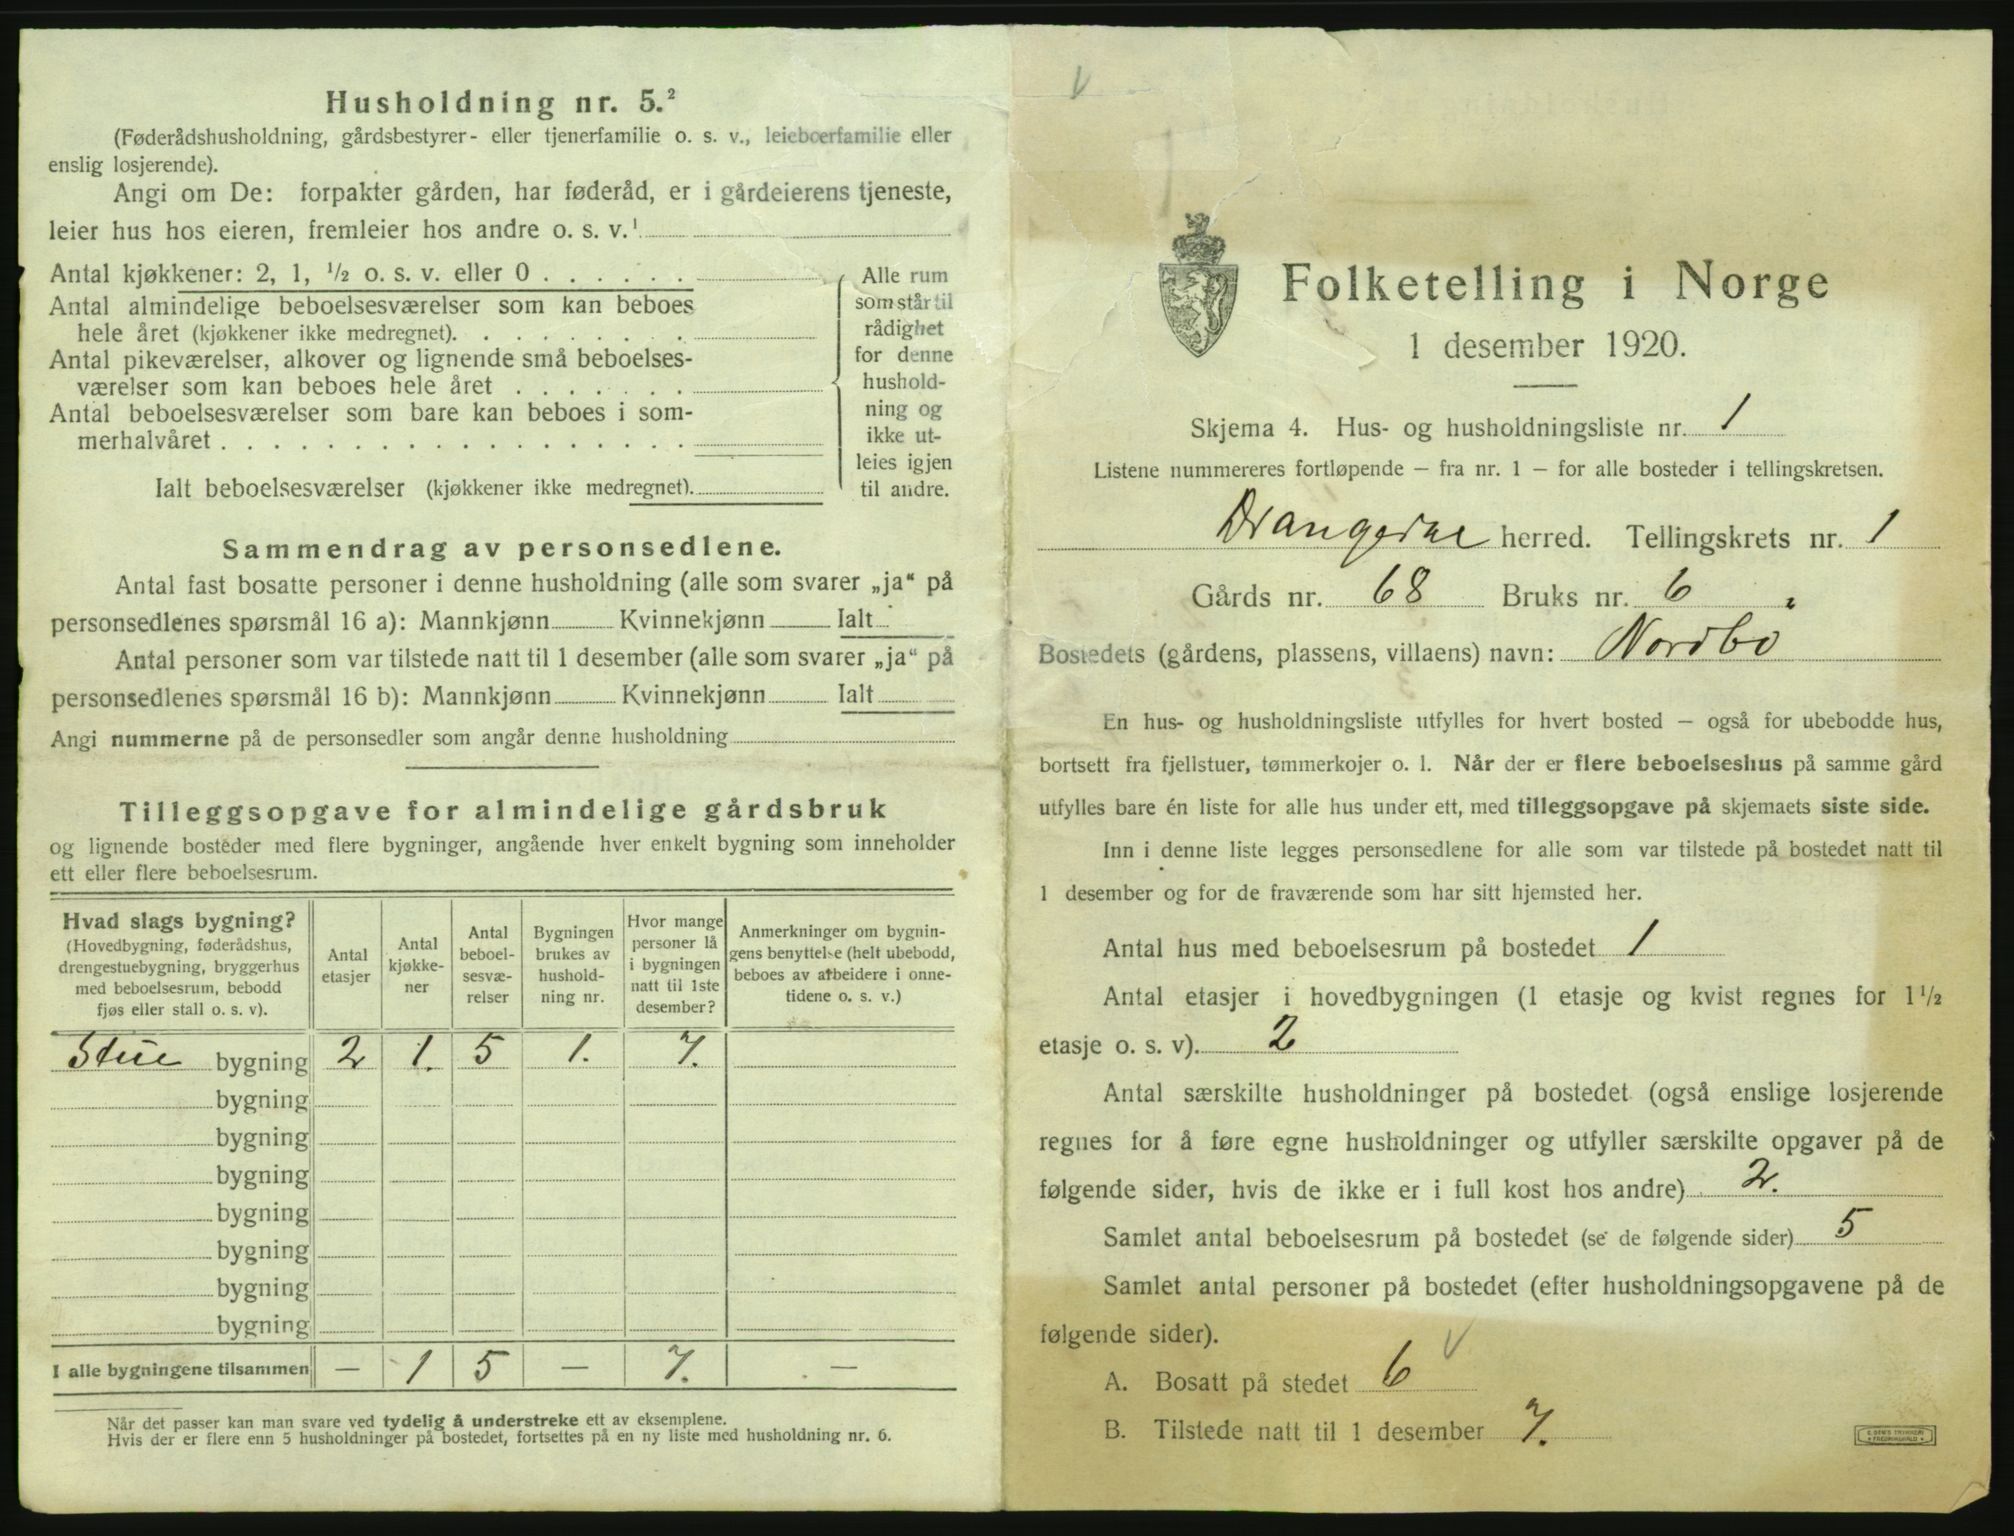 Husholdning nr. 5.²
(Føderådshusholdning, gårdsbestyrer- eller tjenerfamilie o. s. v., leieboerfamilie eller
enslig losjerende).
Angi om De: forpakter gården, har føderåd, er i gårdeierens tjeneste,
leier hus hos eieren, fremleier hos andre o. s. v.¹
Antal kjøkkener: 2, 1, ¹/₂ o. s. v. eller 0 . . . . . .
Antal almindelige beboelsesværelser som kan beboes
hele året (kjøkkener ikke medregnet). . . . . . . . .
Antal pikeværelser, alkover og lignende små beboelses-
værelser som kan beboes hele året . . . . . . .
Antal beboelsesværelser som bare kan beboes i som-
merhalvåret . . . . . . . . . . . . . . . . . .
Ialt beboelsesværelser (kjøkkener ikke medregnet).
Alle rum
som står til
rådighet
for denne
hushold-
ning og
ikke ut-
leies igjen
til andre.
Sammendrag av personsedlene.
Antal fast bosatte personer i denne husholdning (alle som svarer „ja“ på
personsedlenes spørsmål 16 a): Mannkjønn Kvinnekjønn Ialt
Antal personer som var tilstede natt til 1 desember (alle som svarer „ja“ på
personsedlenes spørsmål 16 b): Mannkjønn Kvinnekjønn Ialt
Angi nummerne på de personsedler som angår denne husholdning
Tilleggsopgave for almindelige gårdsbruk
og lignende bosteder med flere bygninger, angående hver enkelt bygning som inneholder
ett eller flere beboelsesrum.
Hvad slags bygning?
(Hovedbygning, føderådshus,
drengestuebygning, bryggerhus
med beboelsesrum, bebodd
fjøs eller stall o. s. v).
Antal
etasjer
Antal
kjøkke-
ner
Antal
beboel-
sesvæ-
relser
Bygningen
brukes av
hushold-
ning nr.
Hvor mange
personer lå
i bygningen
natt til 1ste
desember?
Anmerkninger om bygnin-
gens benyttelse (helt ubebodd,
beboes av arbeidere i onne-
tidene o. s. v.)
Stue bygning 2 1. 5 1. 7.
bygning
bygning
bygning
bygning
bygning
bygning
bygning
I alle bygningene tilsammen — 1 5 — 7. —
Når det passer kan man svare ved tydelig å understreke ett av eksemplene.
Hvis der er flere enn 5 husholdninger på bostedet, fortsettes på en ny liste med husholdning nr. 6.
Folketelling i Norge
1 desember 1920.
Skjema 4. Hus- og husholdningsliste nr. 1
Listene nummereres fortløpende — fra nr. 1 — for alle bosteder i tellingskretsen.
Drangedal herred. Tellingskrets nr. 1
Gårds nr. 68 Bruks nr. 6
Bostedets (gårdens, plassens, villaens) navn: Nordbö
En hus- og husholdningsliste utfylles for hvert bosted — også for ubebodde hus,
bortsett fra fjellstuer, tømmerkojer o. l. Når der er flere beboelseshus på samme gård
utfylles bare én liste for alle hus under ett, med tilleggsopgave på skjemaets siste side.
Inn i denne liste legges personsedlene for alle som var tilstede på bostedet natt til
1 desember og for de fraværende som har sitt hjemsted her.
Antal hus med beboelsesrum på bostedet 1
Antal etasjer i hovedbygningen (1 etasje og kvist regnes for 1¹/₂
etasje o. s. v). 2
Antal særskilte husholdninger på bostedet (også enslige losjerende
regnes for å føre egne husholdninger og utfyller særskilte opgaver på de
følgende sider, hvis de ikke er i full kost hos andre) 2.
Samlet antal beboelsesrum på bostedet (se de følgende sider) 5
Samlet antal personer på bostedet (efter husholdningsopgavene på de
følgende sider).
A. Bosatt på stedet 6
B. Tilstede natt til 1 desember 7.